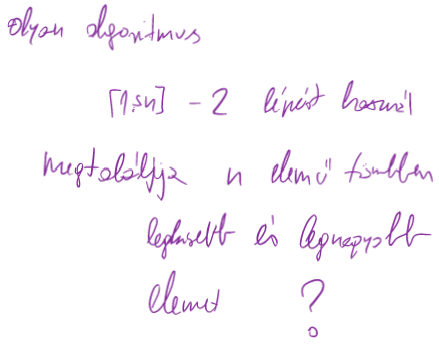 olyan algoritmus
⌈1,5n⌉ - 2 lépést használ
megtalálja n elemű tömbben
legkisebb és legnagyobb
elemet ?